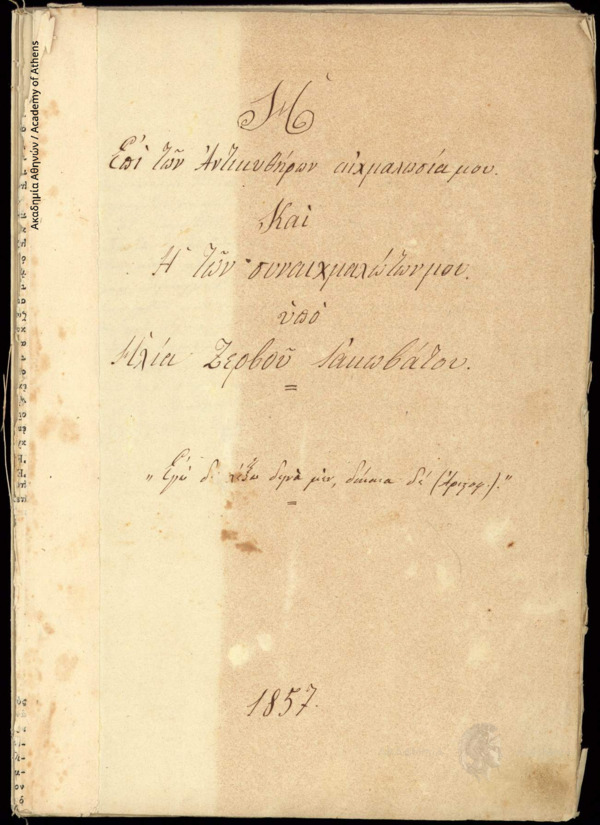 Ἡ
Ἐπὶ τῶν Ἀντικυθήρων αἰχμαλωσία μου.
Καὶ
Ἡ τῶν συναιχμαλώτων μου.
ὑπὸ
Ἠλία Ζερβοῦ Ἰακωβάτου.
"Ἐγὼ δὲ λέξω δεινὰ μὲν, δίκαια δέ (Ἀριστοφ.)."
1857.
Ακαδημία Αθηνών / Academy of Athens